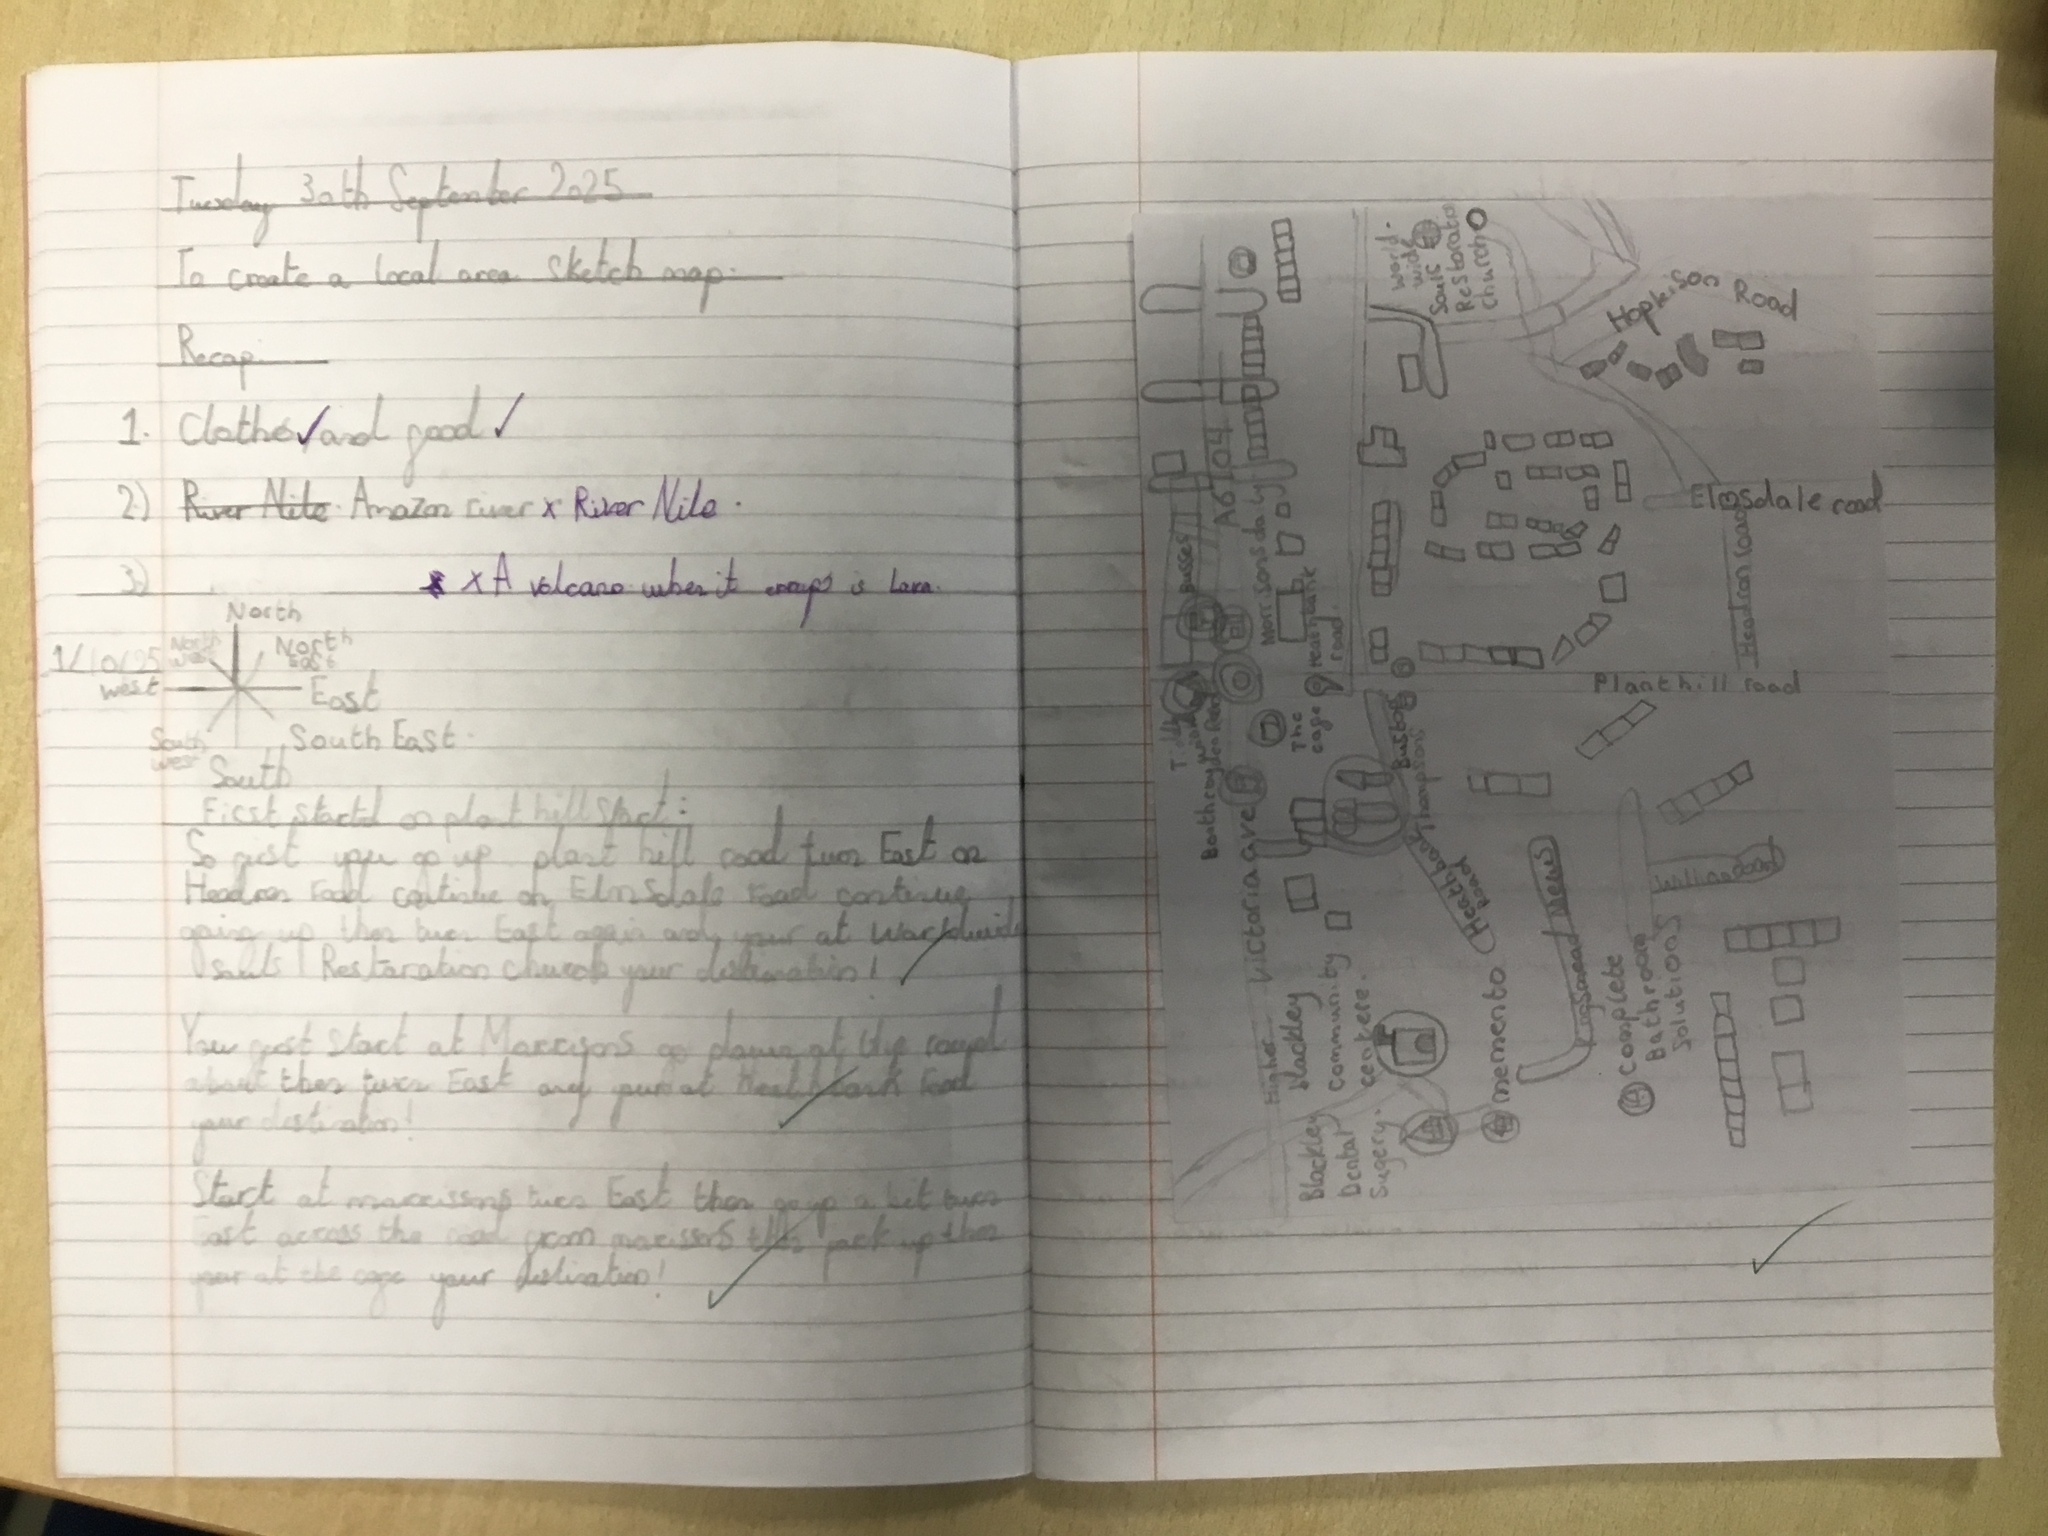 Tuesday 30th September 2025
To create a local area sketch map.
Recap
1. Clothes and food
2) River Nile Amazon river x River Nile.
3) x A volcano when it erupts is lava.
North
North west
North East
1/10/25
west
East
South west
South East
South
First startd on plant hill start:
So first you go up plant hill road turn East on
Headron road continue on Elmsdale road continue
going up then turn East again and your at Worldwide
Souls Restoration church your destination!
You first start at Morrisons go down at the round
about then turn East and your at Heathbank road
your destination!
Start at morrisons turn East then go up a bit turn
East across the road from morrisons then up then
your at the cage your destination!
World-
wide
Souls
Restoration
Church
Hopkison Road
Elmsdale road
Headron road
Plant hill road
A6104
Busses
Morrisons daily
Heathbank
road
The
cage
Boothroyden Road
Victoria ave
Higher
Blackley
community
centere.
Blackley
Dental
Sugery.
Bustop
Thompsons
Heathbank
Road
memento
Kingsmead Mews
complete
Bathroom
Solutions